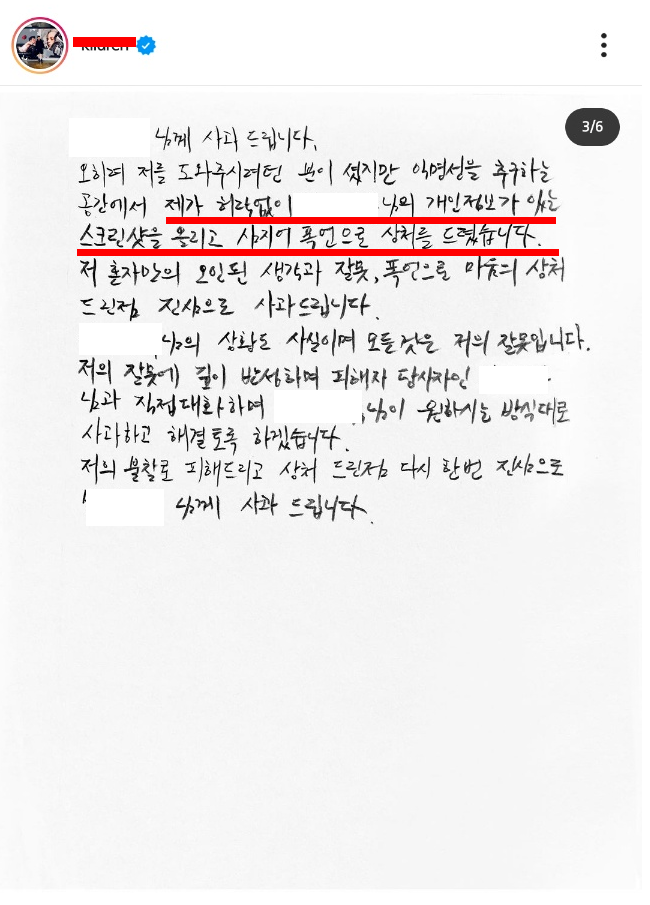 3/6
님께 사과 드립니다.
오히려 저를 도와주시려던 분이 셨지만 익명성을 추구하는
공간에서 제가 허락없이 님의 개인정보가 있는
스크린샷을 올리고 심지어 폭언으로 상처를 드렸습니다.
저 혼자만의 오인된 생각과 잘못, 폭언으로 마음의 상처
드린점 진심으로 사과드립니다.
님의 상황도 사실이며 모든것은 저의 잘못입니다.
저의 잘못에 깊이 반성하며 피해자 당사자인
님과 직접대화하며 님이 원하시는 방식대로
사과하고 해결토록 하겠습니다.
저의 불찰로 피해드리고 상처 드린점 다시 한번 진심으로
님께 사과 드립니다.